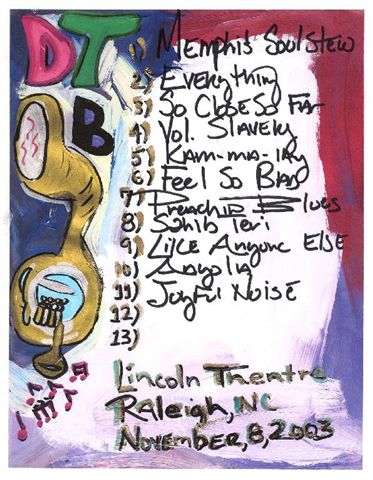 DTB
1) Memphis Soul Stew
2) Everything
3) So Close So Far
4) Vol. Slavery
5) Kam-ma-lay
6) Feel So Bad
7) Preachin Blues
8) Sahib Teri
9) Like Anyone ELSE
10) Angola
11) Joyful Noise
12)
13)
Lincoln Theatre
RAleigh, NC
November, 8, 2003